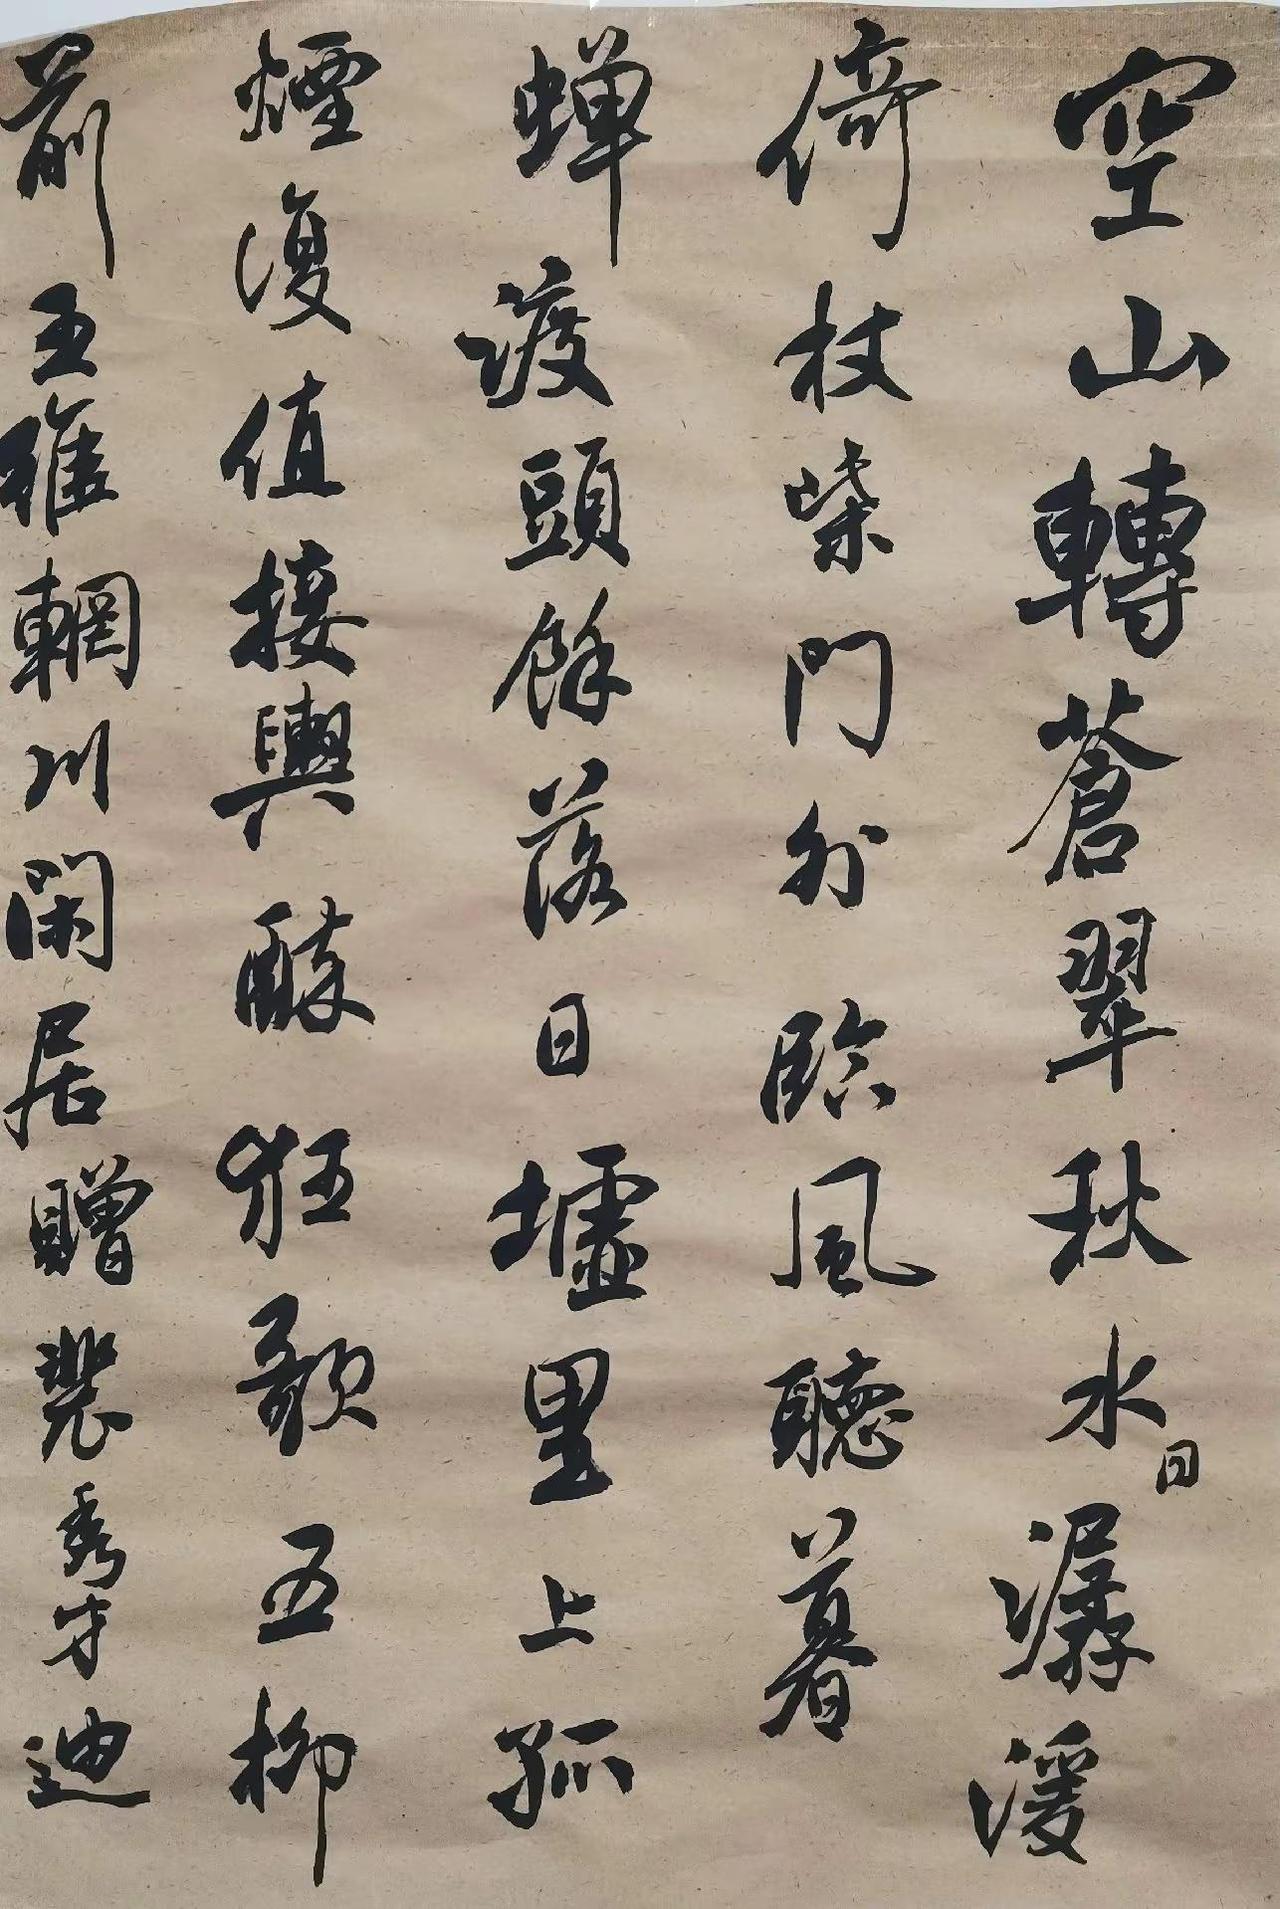 空山轉蒼翠秋水日潺湲
倚杖柴門外臨風聽暮
蟬渡頭餘落日墟里上孤
煙復值接輿醉狂歌五柳
前王維輞川閑居贈裴秀才迪